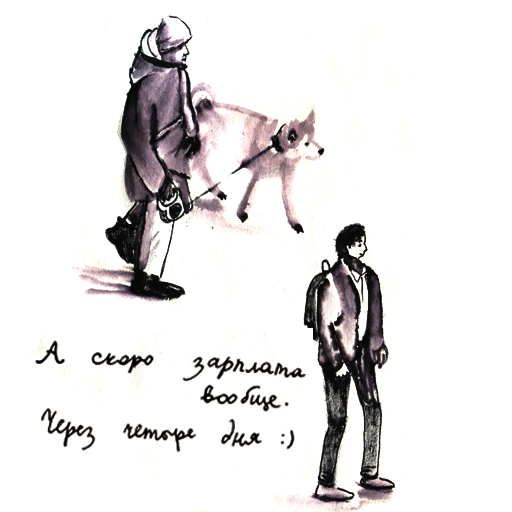 А скоро зарплата
вообще.
Через четыре дня :)